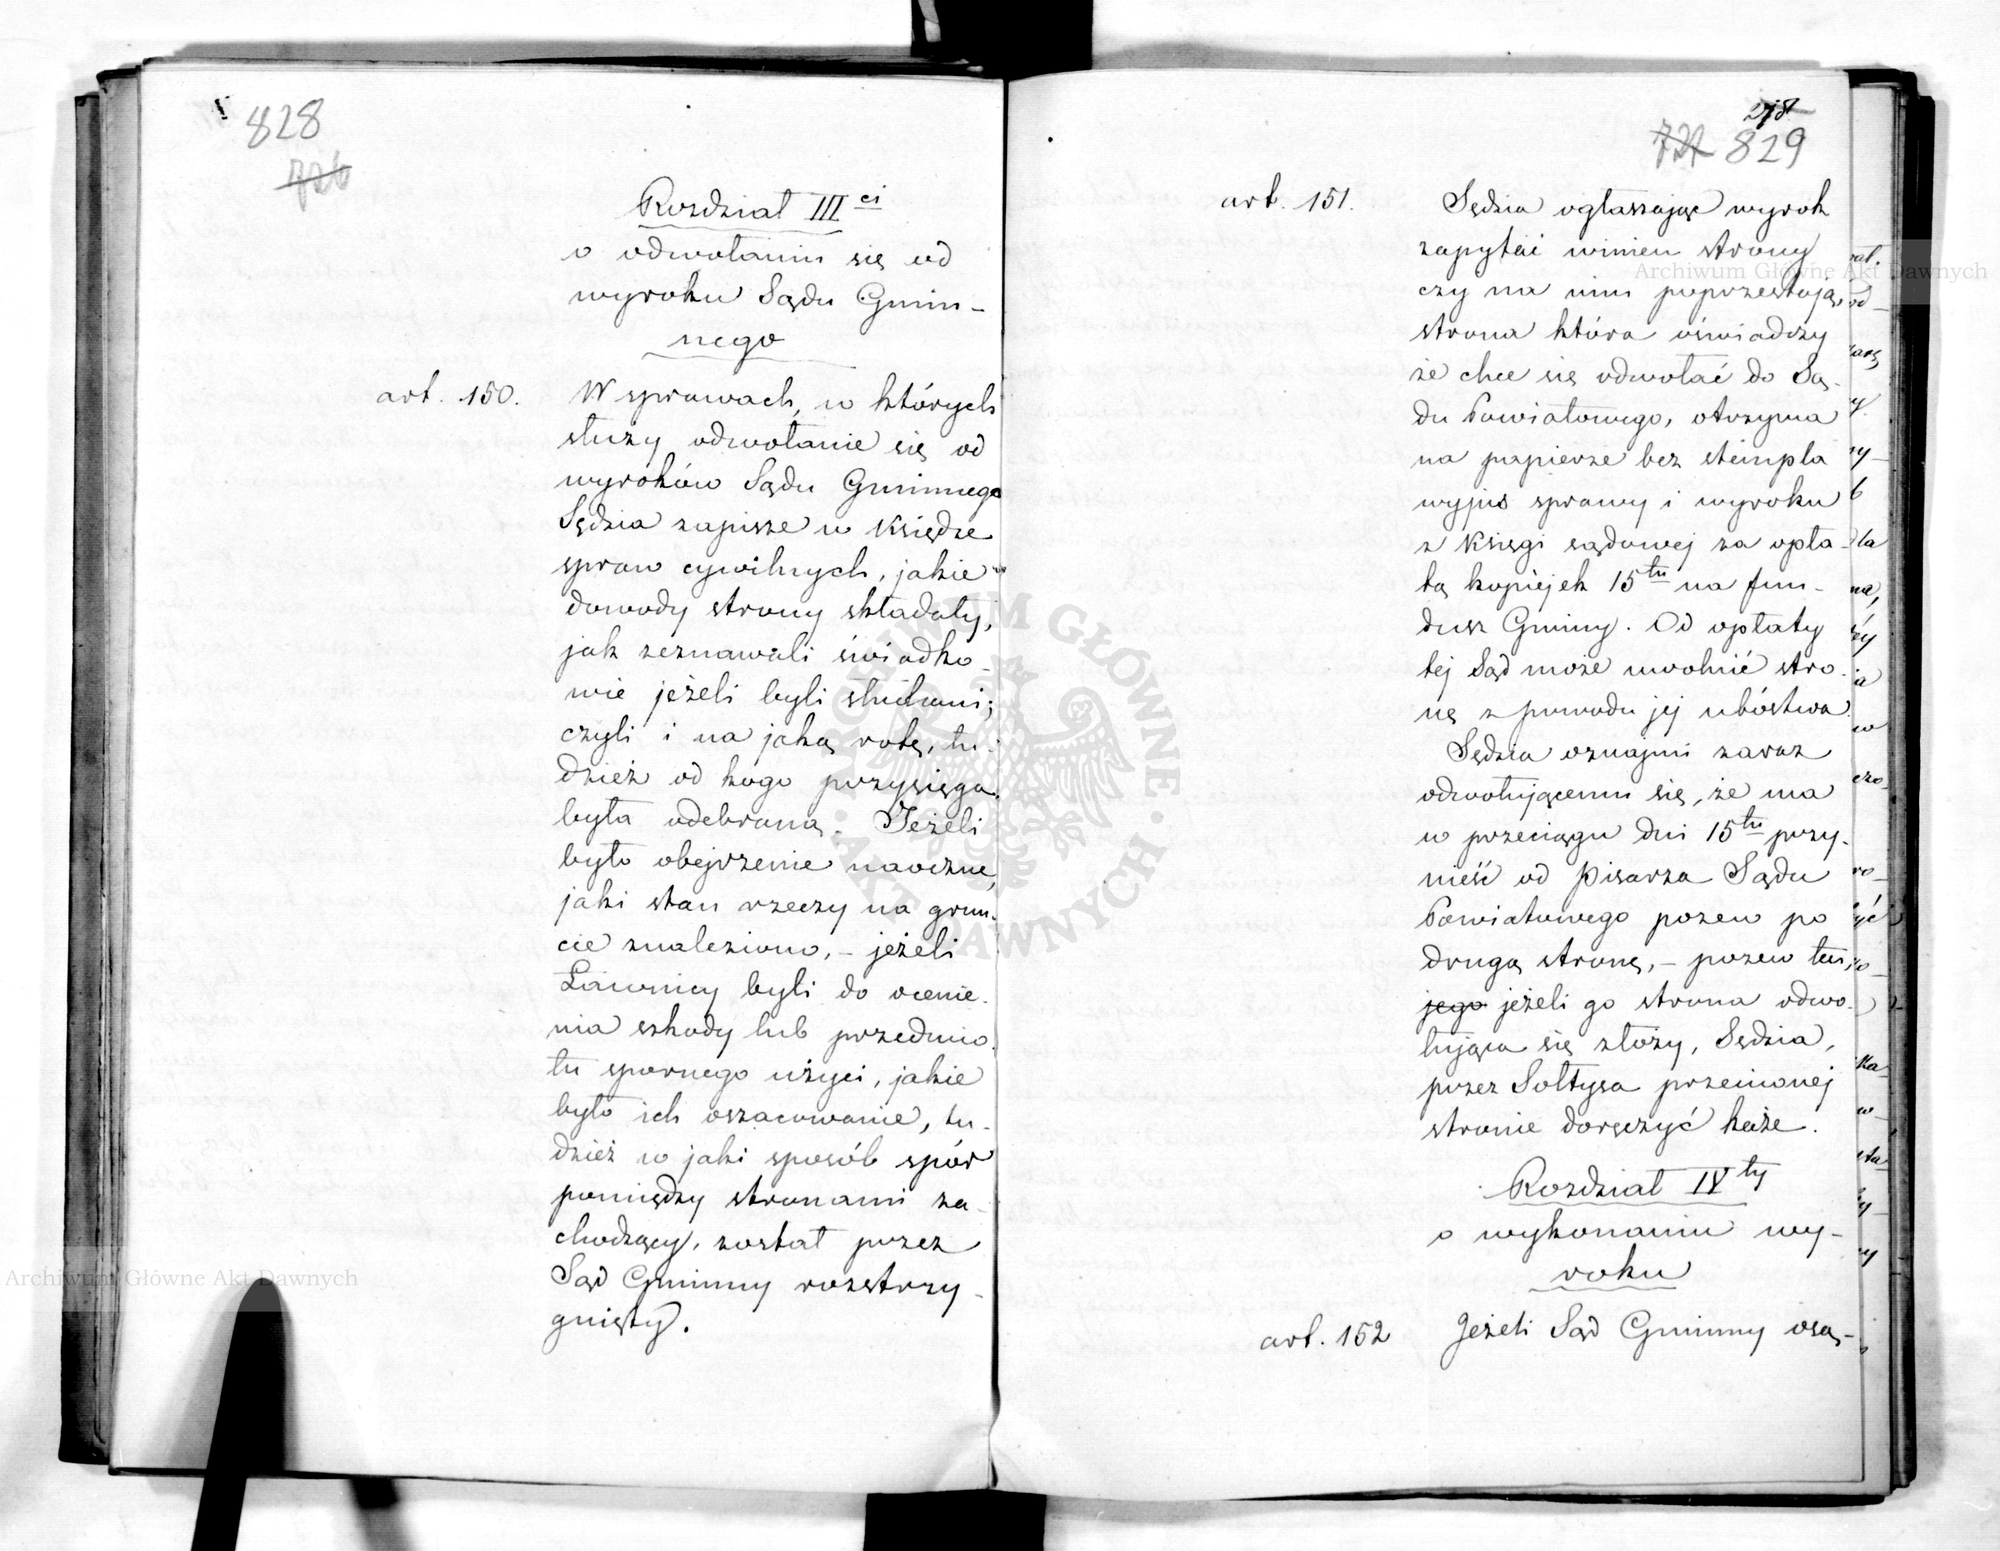 828
726
Rozdział III ci
o odwołaniu się od
wyroku Sądu Gmin-
nego
art. 150.
W sprawach, w których
służy odwołanie się od
wyroków Sądu Gminnego
Sędzia zapisze w Księdze
spraw cywilnych, jakie
dowody strony składały,
jak zeznawali świadko-
wie jeżeli byli słuchani;
czyli i na jaką rotę, tu-
dzież od kogo przysięga
była odebraną. Jeżeli
było obejrzenie naoczne,
jaki stan rzeczy na grun-
cie znaleziono, – jeżeli
Ławnicy byli do ocenie-
nia szkody lub przedmio-
tu spornego użyci, jakie
było ich oszacowanie, tu-
dzież w jaki sposób spór
pomiędzy stronami za-
chodzący, został przez
Sąd Gminny rozstrzy-
gnięty.
278
727 829
art. 151.
Sędzia ogłaszając wyrok
zapytać winien strony
czy na nim poprzestają,
strona która oświadczy
że chce się odwołać do Są-
du Powiatowego, otrzyma
na papierze bez stempla
wypis sprawy i wyroku
z Księgi sądowej za opła-
tą kopiejek 15tu na fun-
dusz Gminy. Od opłaty
tej Sąd może uwolnić stro-
nę z powodu jej ubóstwa.
Sędzia oznajmi zaraz
odwołującemu się, że ma
w przeciągu dni 15tu przy-
nieść od Pisarza Sądu
Powiatowego pozew po
drugą stronę, – pozew ten,
jego jeżeli go strona odwo-
łująca się złoży, Sędzia,
przez Sołtysa przeciwnej
stronie doręczyć każe.
Rozdział IV ty
o wykonaniu wy-
roku
art. 152
Jeżeli Sąd Gminny osą-
Archiwum Główne Akt Dawnych
Archiwum Główne Akt Dawnych
ARCHIWUM GŁÓWNE · AKT DAWNYCH ·